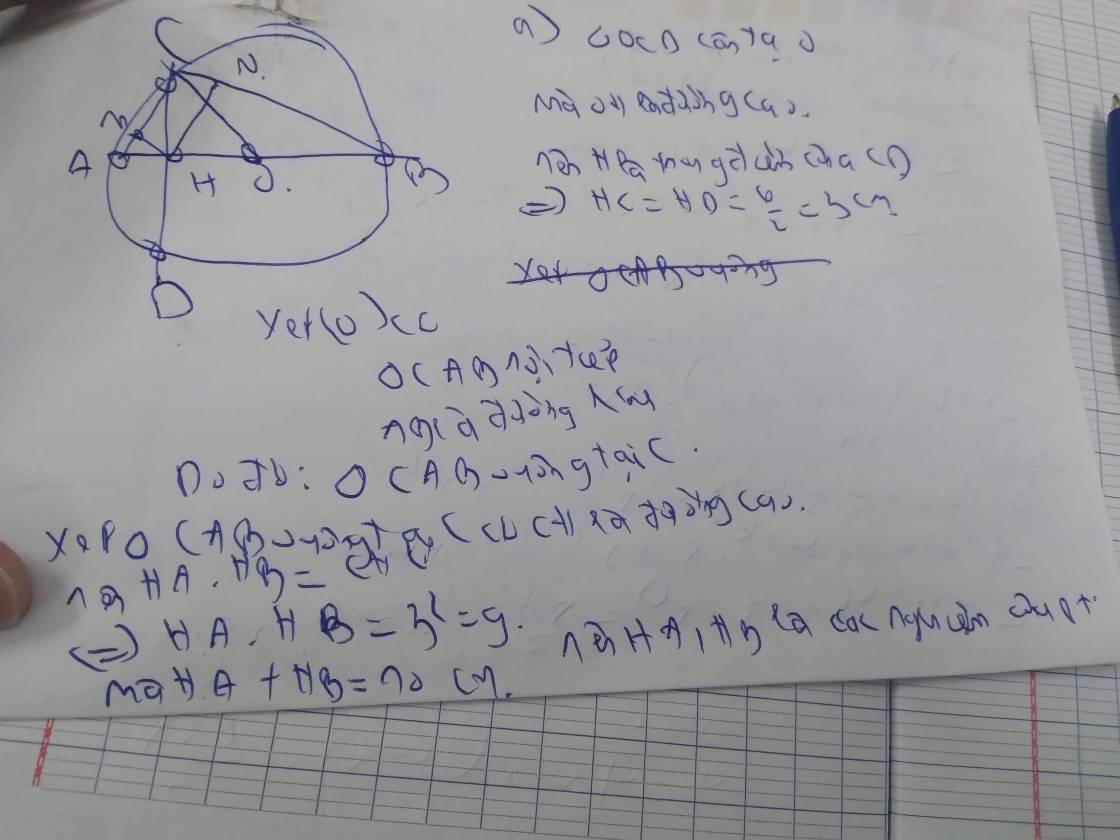 C
N.
M
A
H
O.
B
D
a) △OCD cân tại O
mà OH là đường cao.
nên H là trung điểm của CD
=> HC = HD = 6/2 = 3 cm
Xét △CAB vuông
Xét (O) có
△CAB nội tiếp
AB là đường kính
Do đó: △CAB vuông tại C.
Xét △CAB vuông tại C có CH là đường cao.
nên HA . HB = CH²
<=> HA . HB = 3² = 9.
mà HA + HB = 10 cm.
nên HA, HB là các nghiệm của pt.